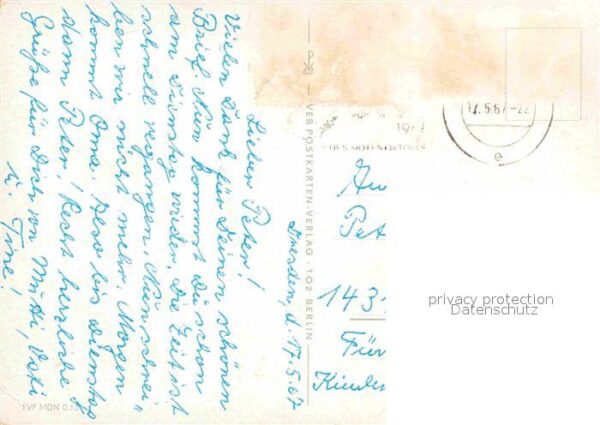 Dresden, d. 17.5.67
Lieber Peter!
Vielen Dank für Deinen schönen
Brief. Nun kommst Du schon
am Dienstag wieder. Die Zeit ist
schnell vergangen. Nun schrei-
ben wir nicht mehr. Morgen
kommt Oma. Also bis Dienstag
dann Peter! Recht herrliche
Grüße für Dich von Mutti, Vati
u. Tine!
VEB POSTKARTEN-VERLAG · 102 BERLIN
EVP MDN 0.15
17.5.67-22
a
An
Pet
143
Für
Kinder
privacy protection
Datenschutz